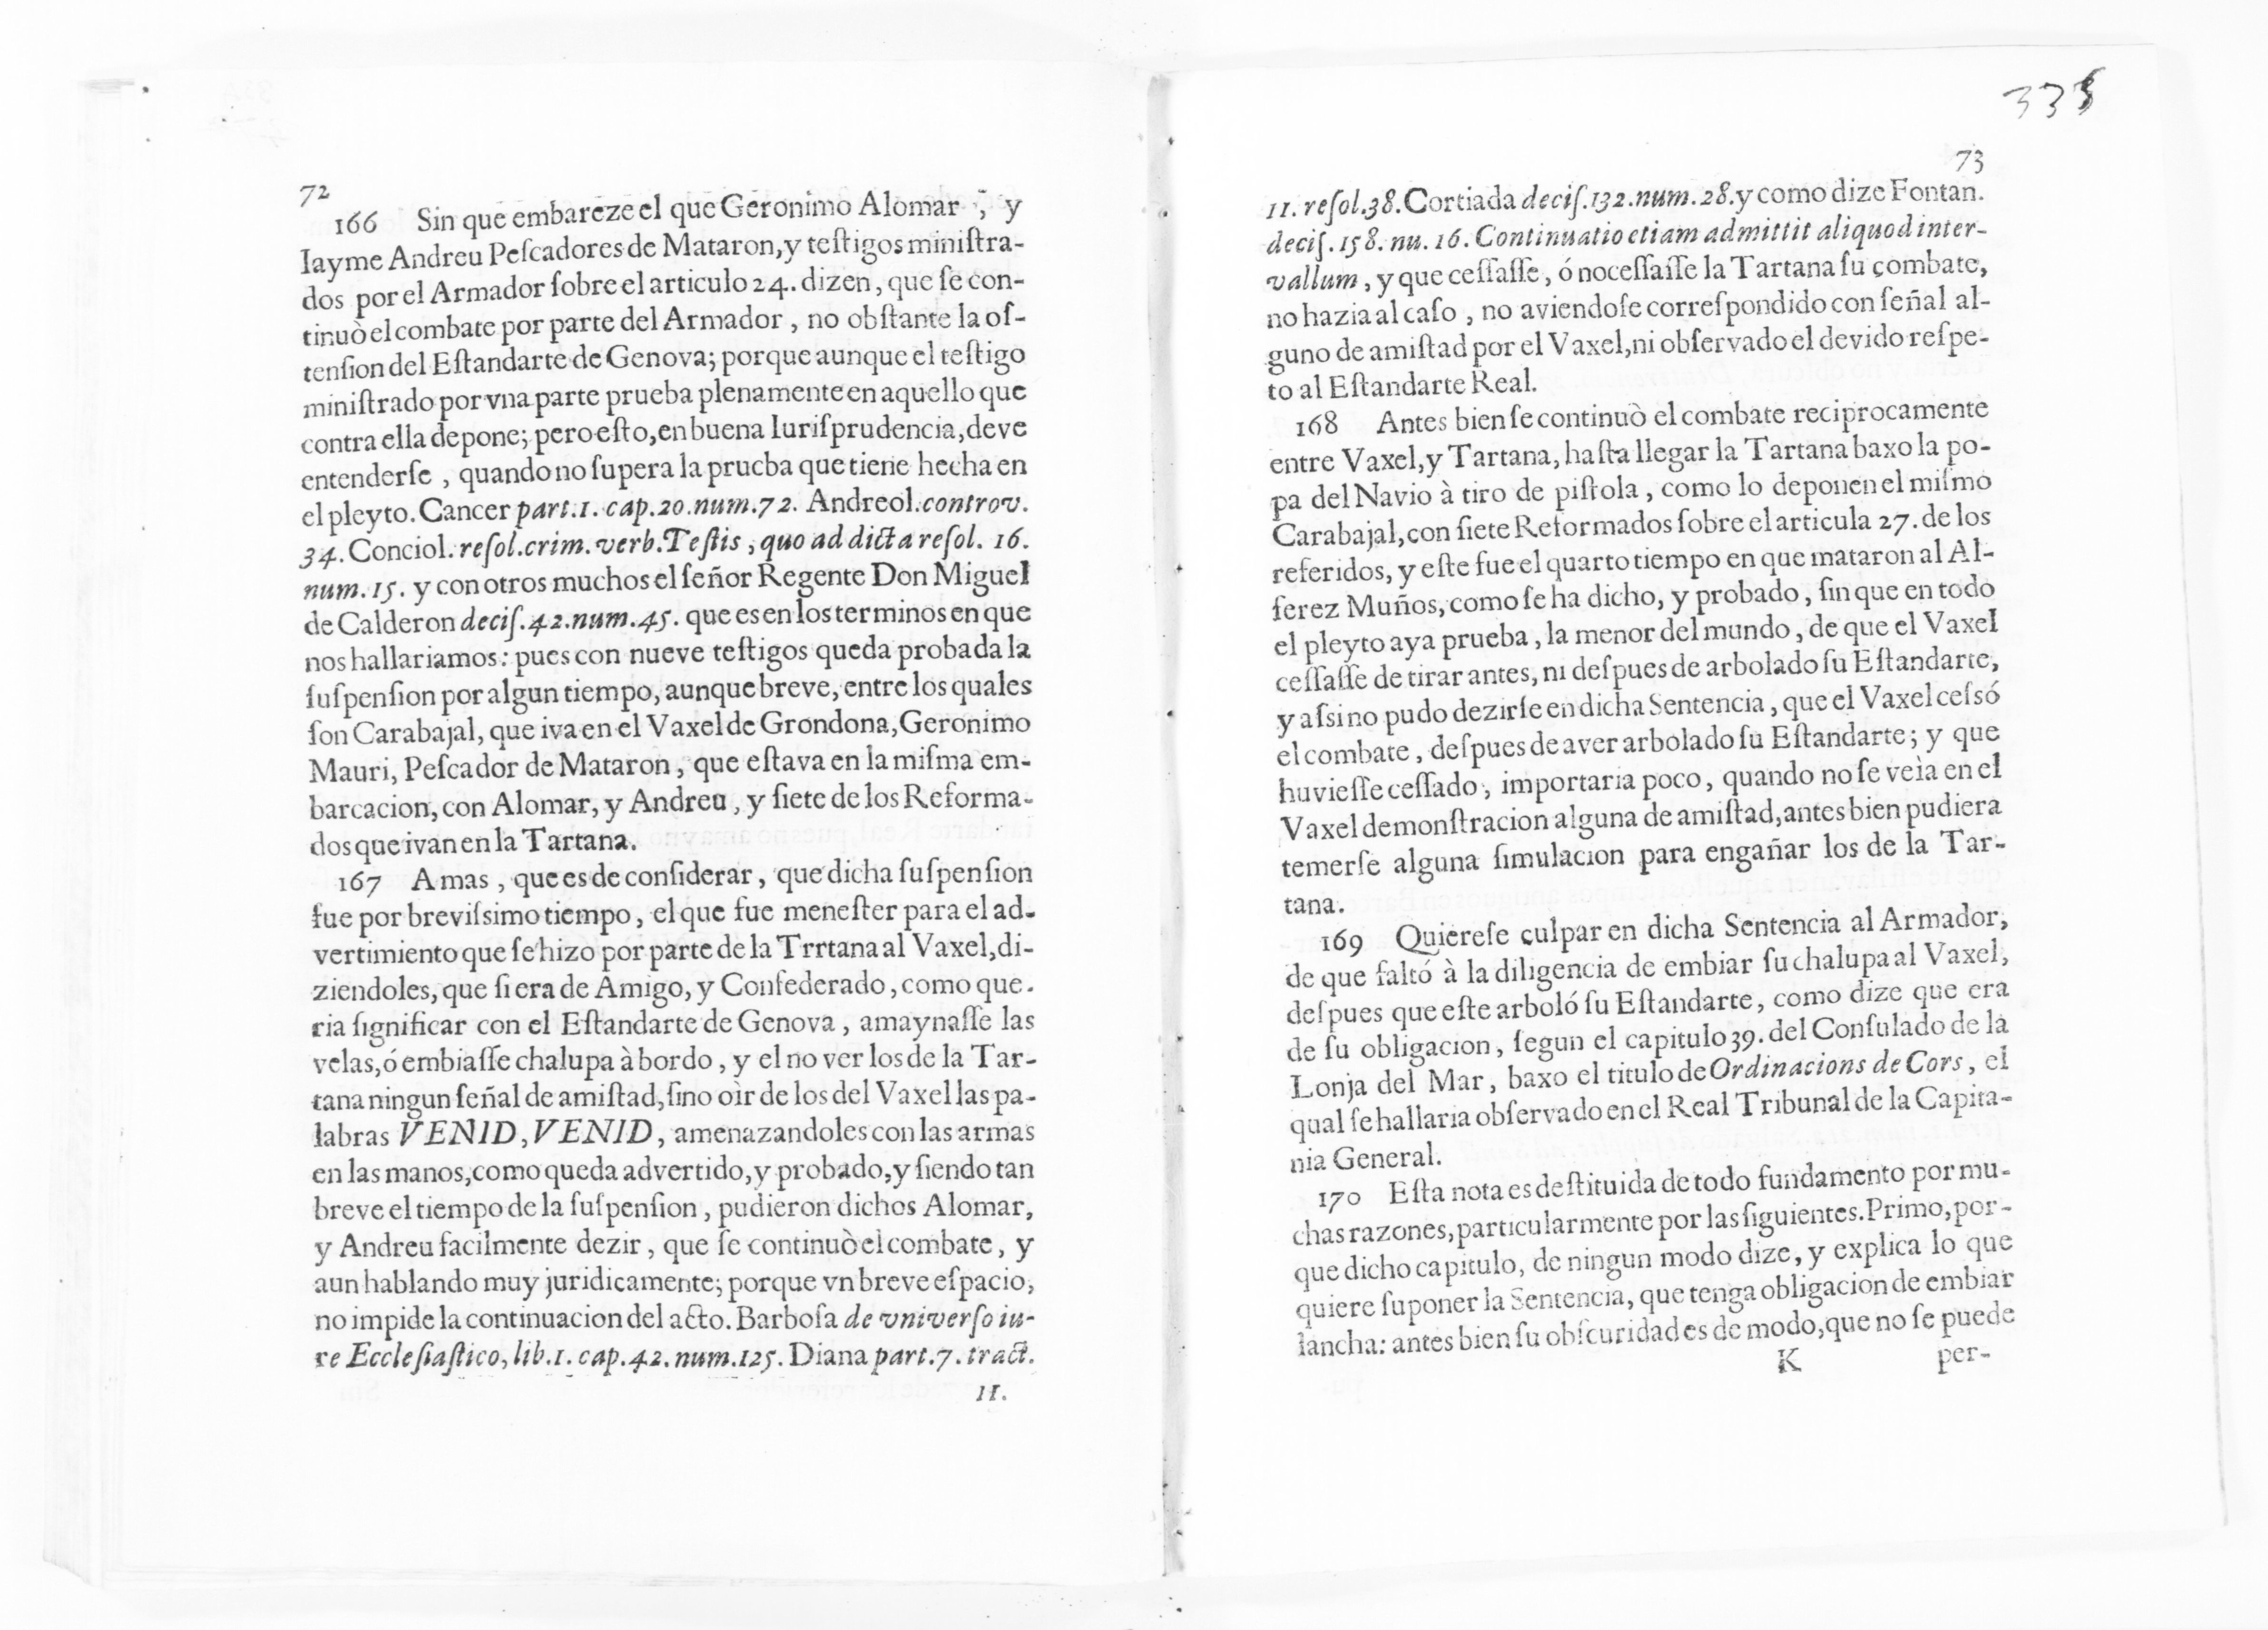 72
166 Sin que embareze el que Geronimo Alomar , y
Iayme Andreu Peſcadores de Mataron, y teſtigos miniſtra-
dos por el Armador ſobre el articulo 24. dizen, que ſe con-
tinuò el combate por parte del Armador , no obſtante la oſ-
tenſion del Eſtandarte de Genova; porque aunque el teſtigo
miniſtrado por vna parte prueba plenamente en aquello que
contra ella depone; pero eſto, en buena Iuriſprudencia, deve
entenderſe , quando no ſupera la prueba que tiene hecha en
el pleyto. Cancer part.1. cap.20.num.72. Andreol.controv.
34. Conciol. reſol.crim. verb.Teſtis , quo ad dicta reſol. 16.
num. 15. y con otros muchos el ſeñor Regente Don Miguel
de Calderon deciſ.42.num.45. que es en los terminos en que
nos hallariamos: pues con nueve teſtigos queda probada la
ſuſpenſion por algun tiempo, aunque breve, entre los quales
ſon Carabajal, que iva en el Vaxel de Grondona, Geronimo
Mauri, Peſcador de Mataron , que eſtava en la miſma em-
barcacion, con Alomar, y Andreu , y ſiete de los Reforma-
dos que ivan en la Tartana.
167 A mas , que es de conſiderar , que dicha ſuſpenſion
fue por breviſsimo tiempo, el que fue meneſter para el ad-
vertimiento que ſe hizo por parte de la Trrtana al Vaxel, di-
ziendoles, que ſi era de Amigo, y Confederado, como que-
ria ſignificar con el Eſtandarte de Genova , amaynaſſe las
velas, ó embiaſſe chalupa à bordo , y el no ver los de la Tar-
tana ningun ſeñal de amiſtad, ſino oìr de los del Vaxel las pa-
labras VENID, VENID , amenazandoles con las armas
en las manos, como queda advertido, y probado, y ſiendo tan
breve el tiempo de la ſuſpenſion , pudieron dichos Alomar,
y Andreu facilmente dezir , que ſe continuò el combate , y
aun hablando muy juridicamente; porque vn breve eſpacio,
no impide la continuacion del acto. Barboſa de vniverſo iu-
re Eccleſiaſtico, lib.1. cap.42.num.125. Diana part.7. tract.
11.
335
73
11. reſol.38. Cortiada deciſ.132.num.28. y como dize Fontan.
deciſ. 158. nu. 16. Continuatio etiam admittit aliquod inter-
vallum , y que ceſſaſſe , ó no ceſſaſſe la Tartana ſu combate,
no hazia al caſo , no aviendoſe correſpondido con ſeñal al-
guno de amiſtad por el Vaxel, ni obſervado el devido reſpe-
to al Eſtandarte Real.
168 Antes bien ſe continuò el combate reciprocamente
entre Vaxel, y Tartana, haſta llegar la Tartana baxo la po-
pa del Navio à tiro de piſtola , como lo deponen el miſmo
Carabajal, con ſiete Reformados ſobre el articula 27. de los
referidos, y eſte fue el quarto tiempo en que mataron al Al-
ferez Muños, como ſe ha dicho, y probado , ſin que en todo
el pleyto aya prueba , la menor del mundo , de que el Vaxel
ceſſaſſe de tirar antes, ni deſpues de arbolado ſu Eſtandarte,
y aſsi no pudo dezirſe en dicha Sentencia , que el Vaxel ceſsó
el combate , deſpues de aver arbolado ſu Eſtandarte; y que
huvieſſe ceſſado, importaria poco , quando no ſe veìa en el
Vaxel demonſtracion alguna de amiſtad, antes bien pudiera
temerſe alguna ſimulacion para engañar los de la Tar-
tana.
169 Quiereſe culpar en dicha Sentencia al Armador,
de que faltó à la diligencia de embiar ſu chalupa al Vaxel,
deſpues que eſte arboló ſu Eſtandarte, como dize que era
de ſu obligacion , ſegun el capitulo 39. del Conſulado de la
Lonja del Mar , baxo el titulo de Ordinacions de Cors , el
qual ſe hallaria obſervado en el Real Tribunal de la Capita-
nia General.
170 Eſta nota es deſtituida de todo fundamento por mu-
chas razones, particularmente por las ſiguientes. Primo, por-
que dicho capitulo, de ningun modo dize, y explica lo que
quiere ſuponer la Sentencia, que tenga obligacion de embiar
lancha: antes bien ſu obſcuridad es de modo, que no ſe puede
K per-